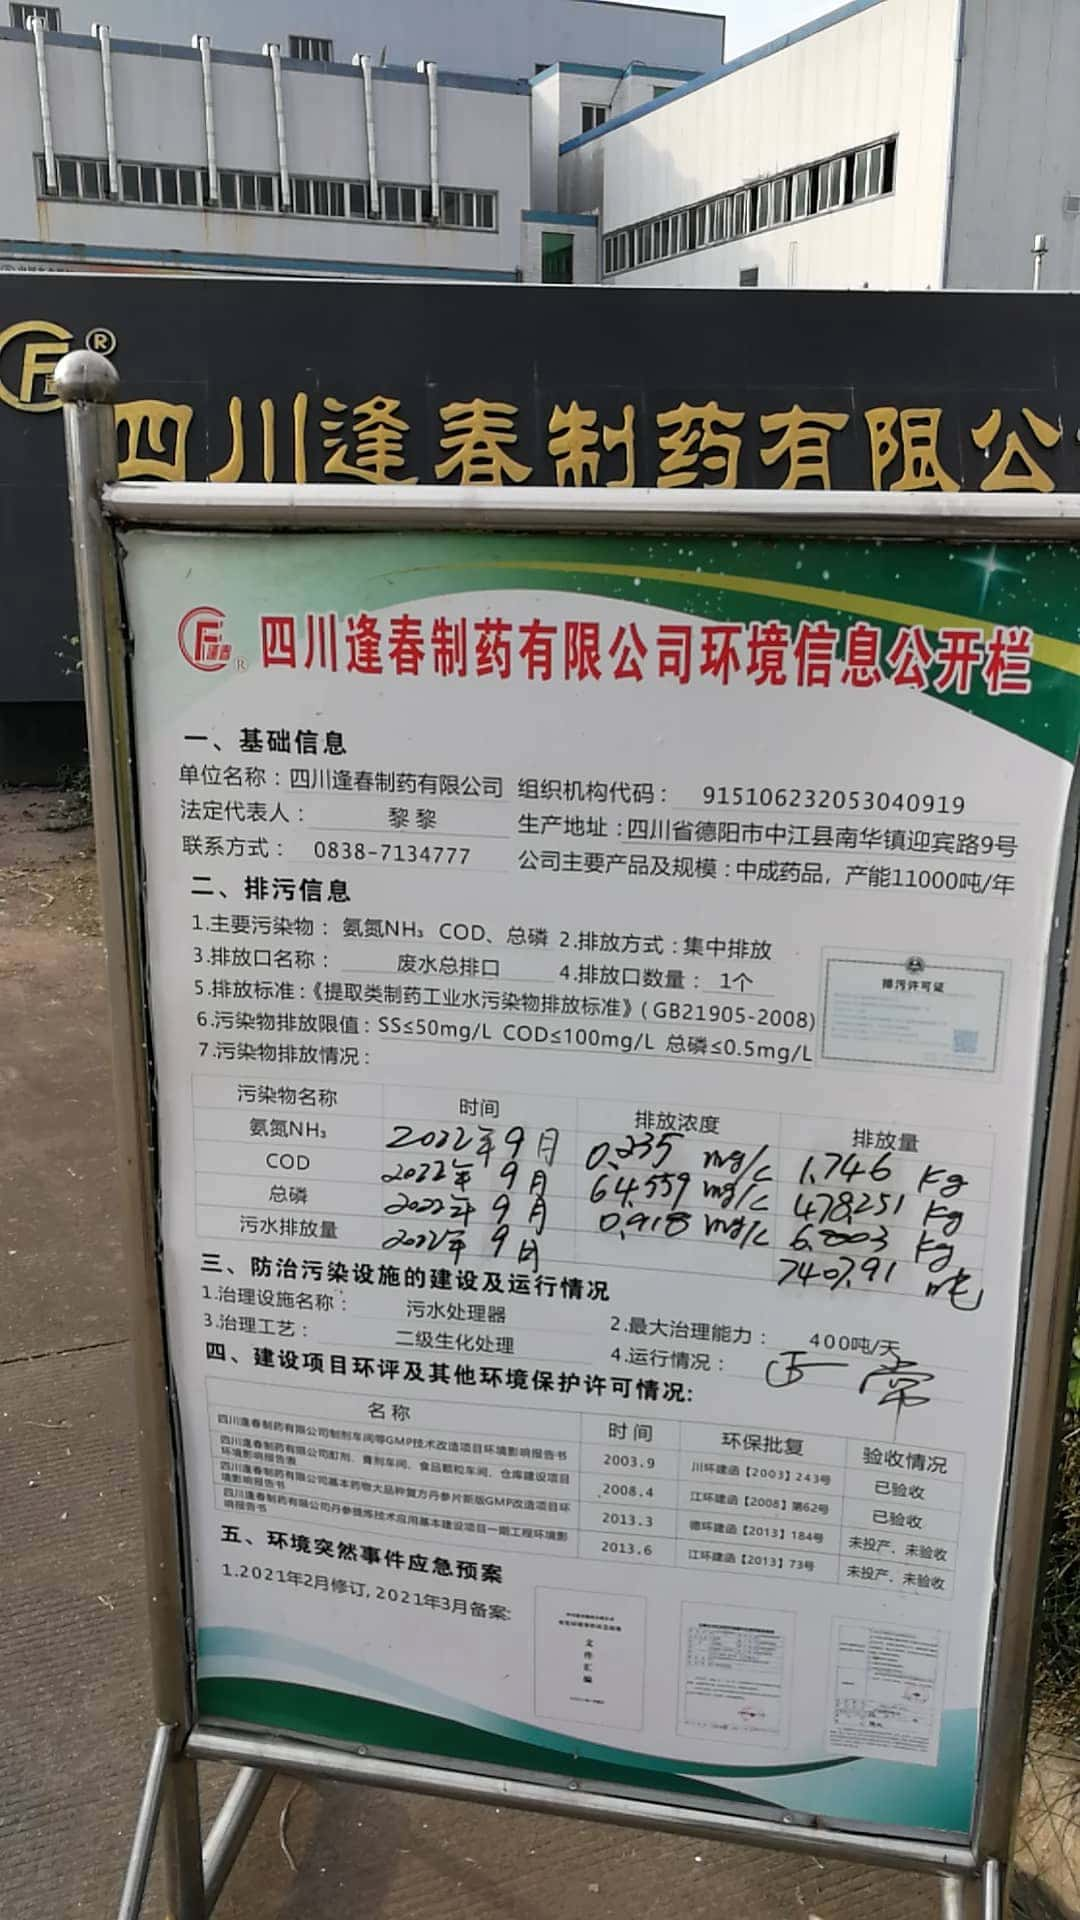 四川逢春制药有限公
四川逢春制药有限公司环境信息公开栏
一、基础信息
单位名称：四川逢春制药有限公司 组织机构代码： 915106232053040919
法定代表人： 黎黎 生产地址：四川省德阳市中江县南华镇迎宾路9号
联系方式： 0838-7134777 公司主要产品及规模：中成药品，产能11000吨/年
二、排污信息
1.主要污染物： 氨氮NH₃ COD、总磷 2.排放方式：集中排放
3.排放口名称： 废水总排口 4.排放口数量： 1个
5.排放标准：《提取类制药工业水污染物排放标准》（GB21905-2008)
6.污染物排放限值：SS≤50mg/L COD≤100mg/L 总磷≤0.5mg/L
排污许可证
7.污染物排放情况：
污染物名称 时间 排放浓度 排放量
氨氮NH₃ 2022年9月 0.235 mg/L 1.746 Kg
COD 2022年9月 64.559 mg/L 478.251 Kg
总磷 2022年9月 0.918 mg/L Kg
污水排放量 2022年9月 7407.91 吨
三、防治污染设施的建设及运行情况
1.治理设施名称： 污水处理器 2.最大治理能力： 400吨/天
3.治理工艺： 二级生化处理 4.运行情况： 正常
四、建设项目环评及其他环境保护许可情况:
名称 时间 环保批复 验收情况
四川逢春制药有限公司制剂车间等GMP技术改造项目环境影响报告书 2003.9 川环建函【2003】243号 已验收
四川逢春制药有限公司酊剂、膏剂车间、食品颗粒车间、仓库建设项目
环境影响报告表 2008.4 江环建函【2008】第62号 已验收
四川逢春制药有限公司基本药物大品种复方丹参片新版GMP改造项目环
境影响报告书 2013.3 德环建函【2013】184号 未投产、未验收
四川逢春制药有限公司丹参提炼技术应用基本建设项目一期工程环境影
响报告书 2013.6 江环建函【2013】73号 未投产、未验收
五、环境突然事件应急预案
1.2021年2月修订, 2021年3月备案:
文件汇编